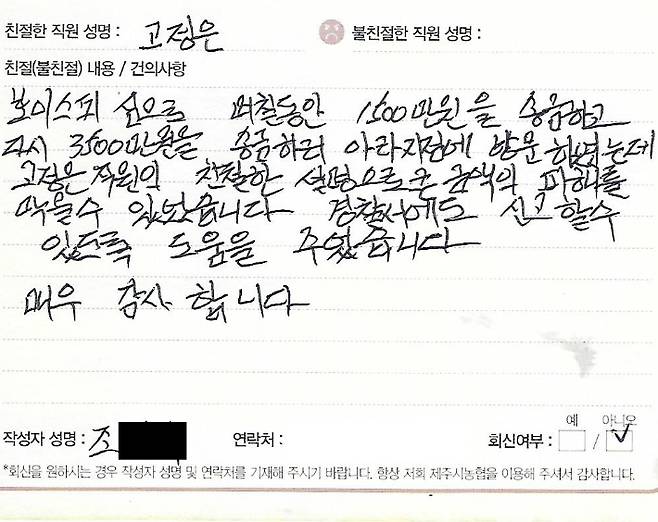 친절한 직원 성명 : 고정은 불친절한 직원 성명 :
친절(불친절) 내용 / 건의사항
보이스피싱으로 며칠동안 1500만원을 송금하고
다시 3500만원을 송금하러 아라지점에 방문 하였는데
고정은직원의 친절한 설명으로 큰 금액의 피해를
막을수 있었습니다 경찰서에도 신고할수
있도록 도움을 주었습니다
매우 감사 합니다
예 아니오
작성자 성명 : 조 연락처 : 회신여부 : / ✓
*회신을 원하시는 경우 작성자 성명 및 연락처를 기재해 주시기 바랍니다. 항상 저희 제주시농협을 이용해 주셔서 감사합니다.